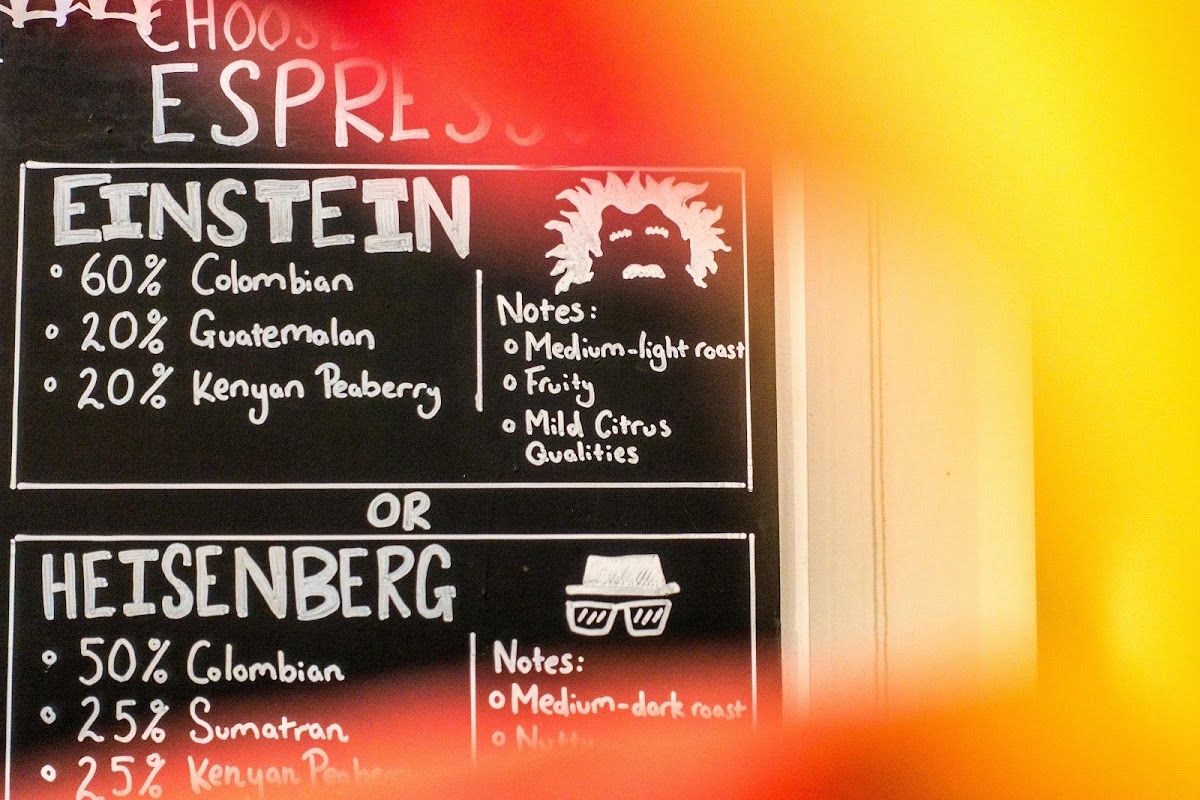 CHOOSE
ESPRESSO
EINSTEIN
60% Colombian
20% Guatemalan
20% Kenyan Peaberry
Notes:
Medium-light roast
Fruity
Mild Citrus
Qualities
OR
HEISENBERG
50% Colombian
25% Sumatran
25% Kenyan Peaberry
Notes:
Medium-dark roast
Nutty